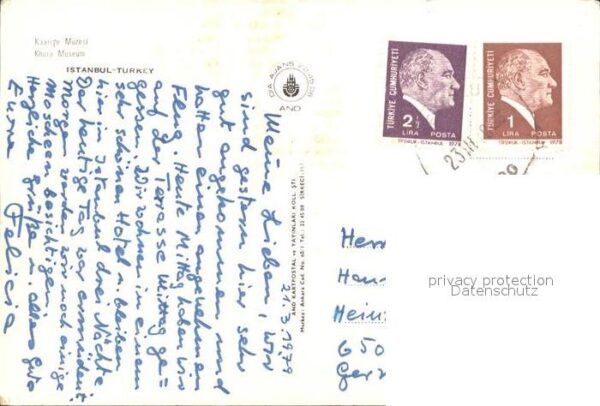 Kaariye Müzesi
Khora Museum
ISTANBUL-TURKEY
AND
TÜRKİYE CUMHURİYETİ
2½
LİRA POSTA
1978
TÜRKİYE CUMHURİYETİ
1
LİRA POSTA
1978
21.3.1979
Meine Lieben, wir
sind gestern hier sehr
gut angekommen und
hatten einen angenehmen
Flug. Heute Mittag haben wir
auf der Terrasse Mittag ge=
gessen. Wir wohnen in einem
sehr schönen Hotel u. bleiben
hier in Istanbul drei Nächte
Der heutige Tag war ermüdend
Morgen werden wir noch einige
Moscheen besichtigen.
Herzliche Grüße u. alles Gute
Eure Felicia
AND KARTPOSTAL ve YAYINLARI KOLL. ŞTİ.
Merkez: Ankara Cad.
Herr
Hans
Hein
650
Ger
privacy protection
Datenschutz